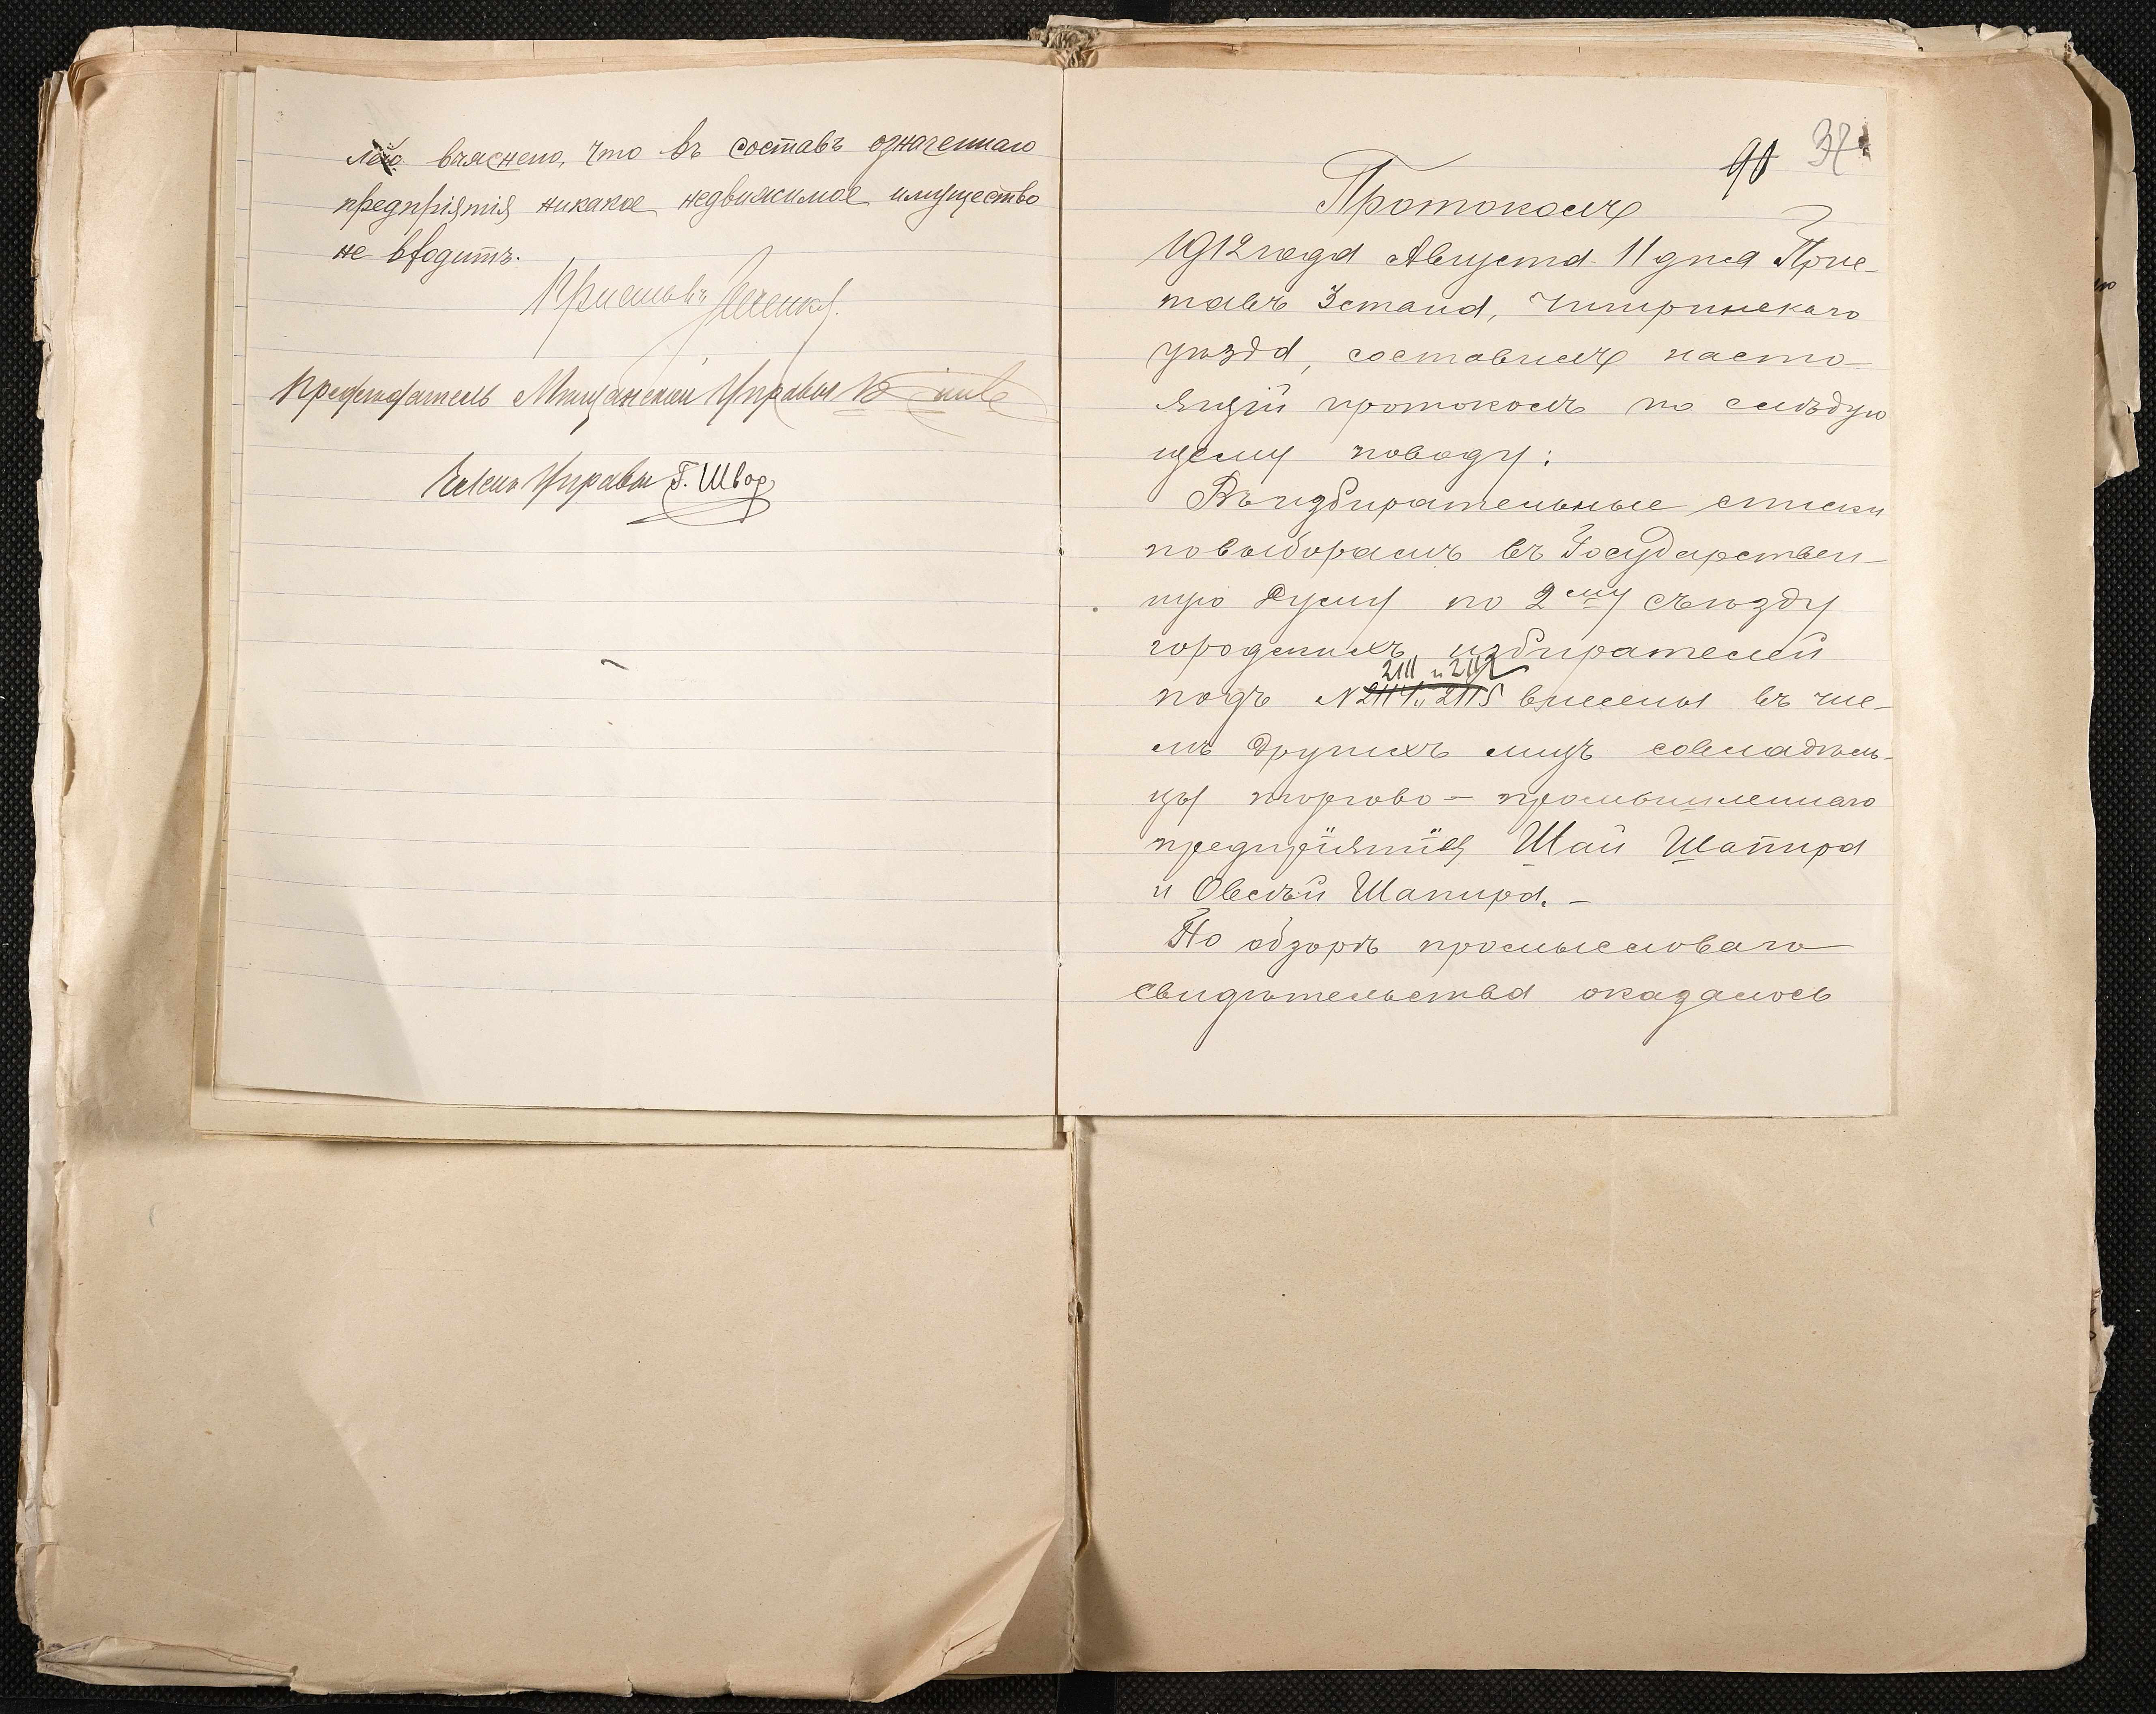 выяснено, что въ составъ означеннаго
предпріятія никакое недвижимое имущество
не входитъ.
Приставъ
Предсѣдатель Мѣщанской Управы
Членъ Управы Г. Швор
90 37
Протоколъ
1912 года Августа 11 дня Прис-
тавъ 3 стана, Чигиринскаго
уѣзда, составилъ насто-
ящій протоколъ по слѣдую
щему поводу:
Въ избирательные списки
по выборамъ въ Государствен-
ную Думу по 2му съѣзду
городскихъ избирателей
2111 и 2112
подъ № 2114 и 2115 внесены въ чис-
лѣ другихъ лицъ совладѣль-
цы торгово-промышленнаго
предпріятія Шаи Шапира
и Овсѣй Шапира.-
По обзорѣ промысловаго
свидѣтельства оказалось